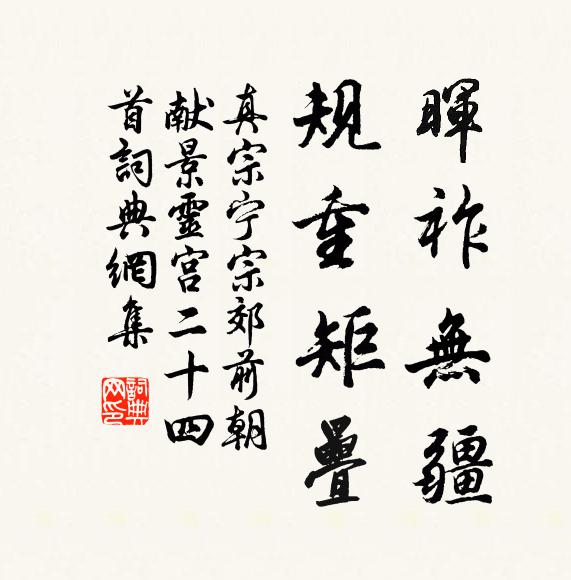 暉祚無疆
規重矩疊
真宗宁宗郊前朝
献景靈宫二十四
首詞典網集
詞典网印